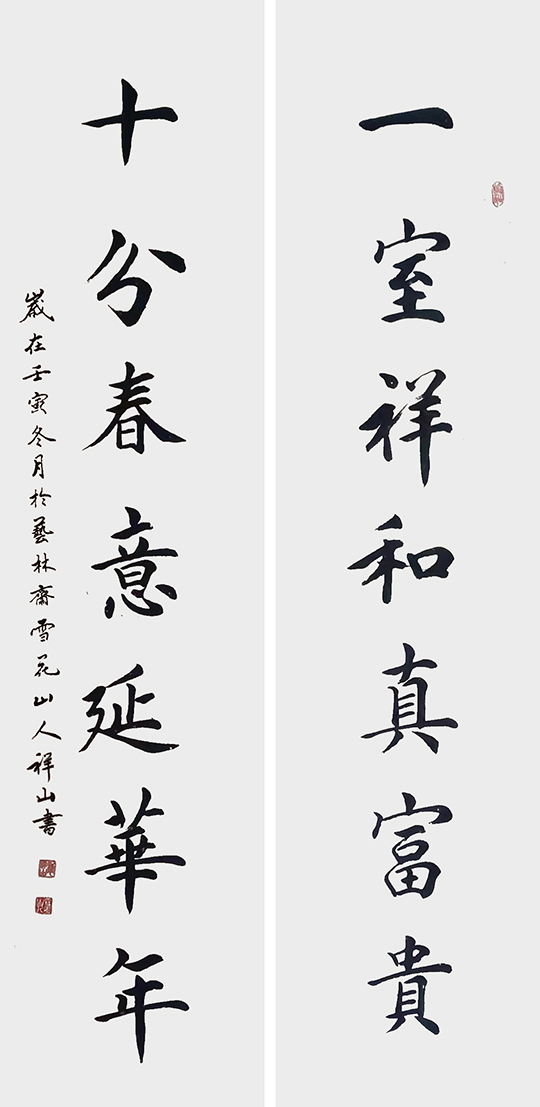 一室祥和真富貴
十分春意延華年
歲在壬寅冬月於藝林齋雪花山人祥山書